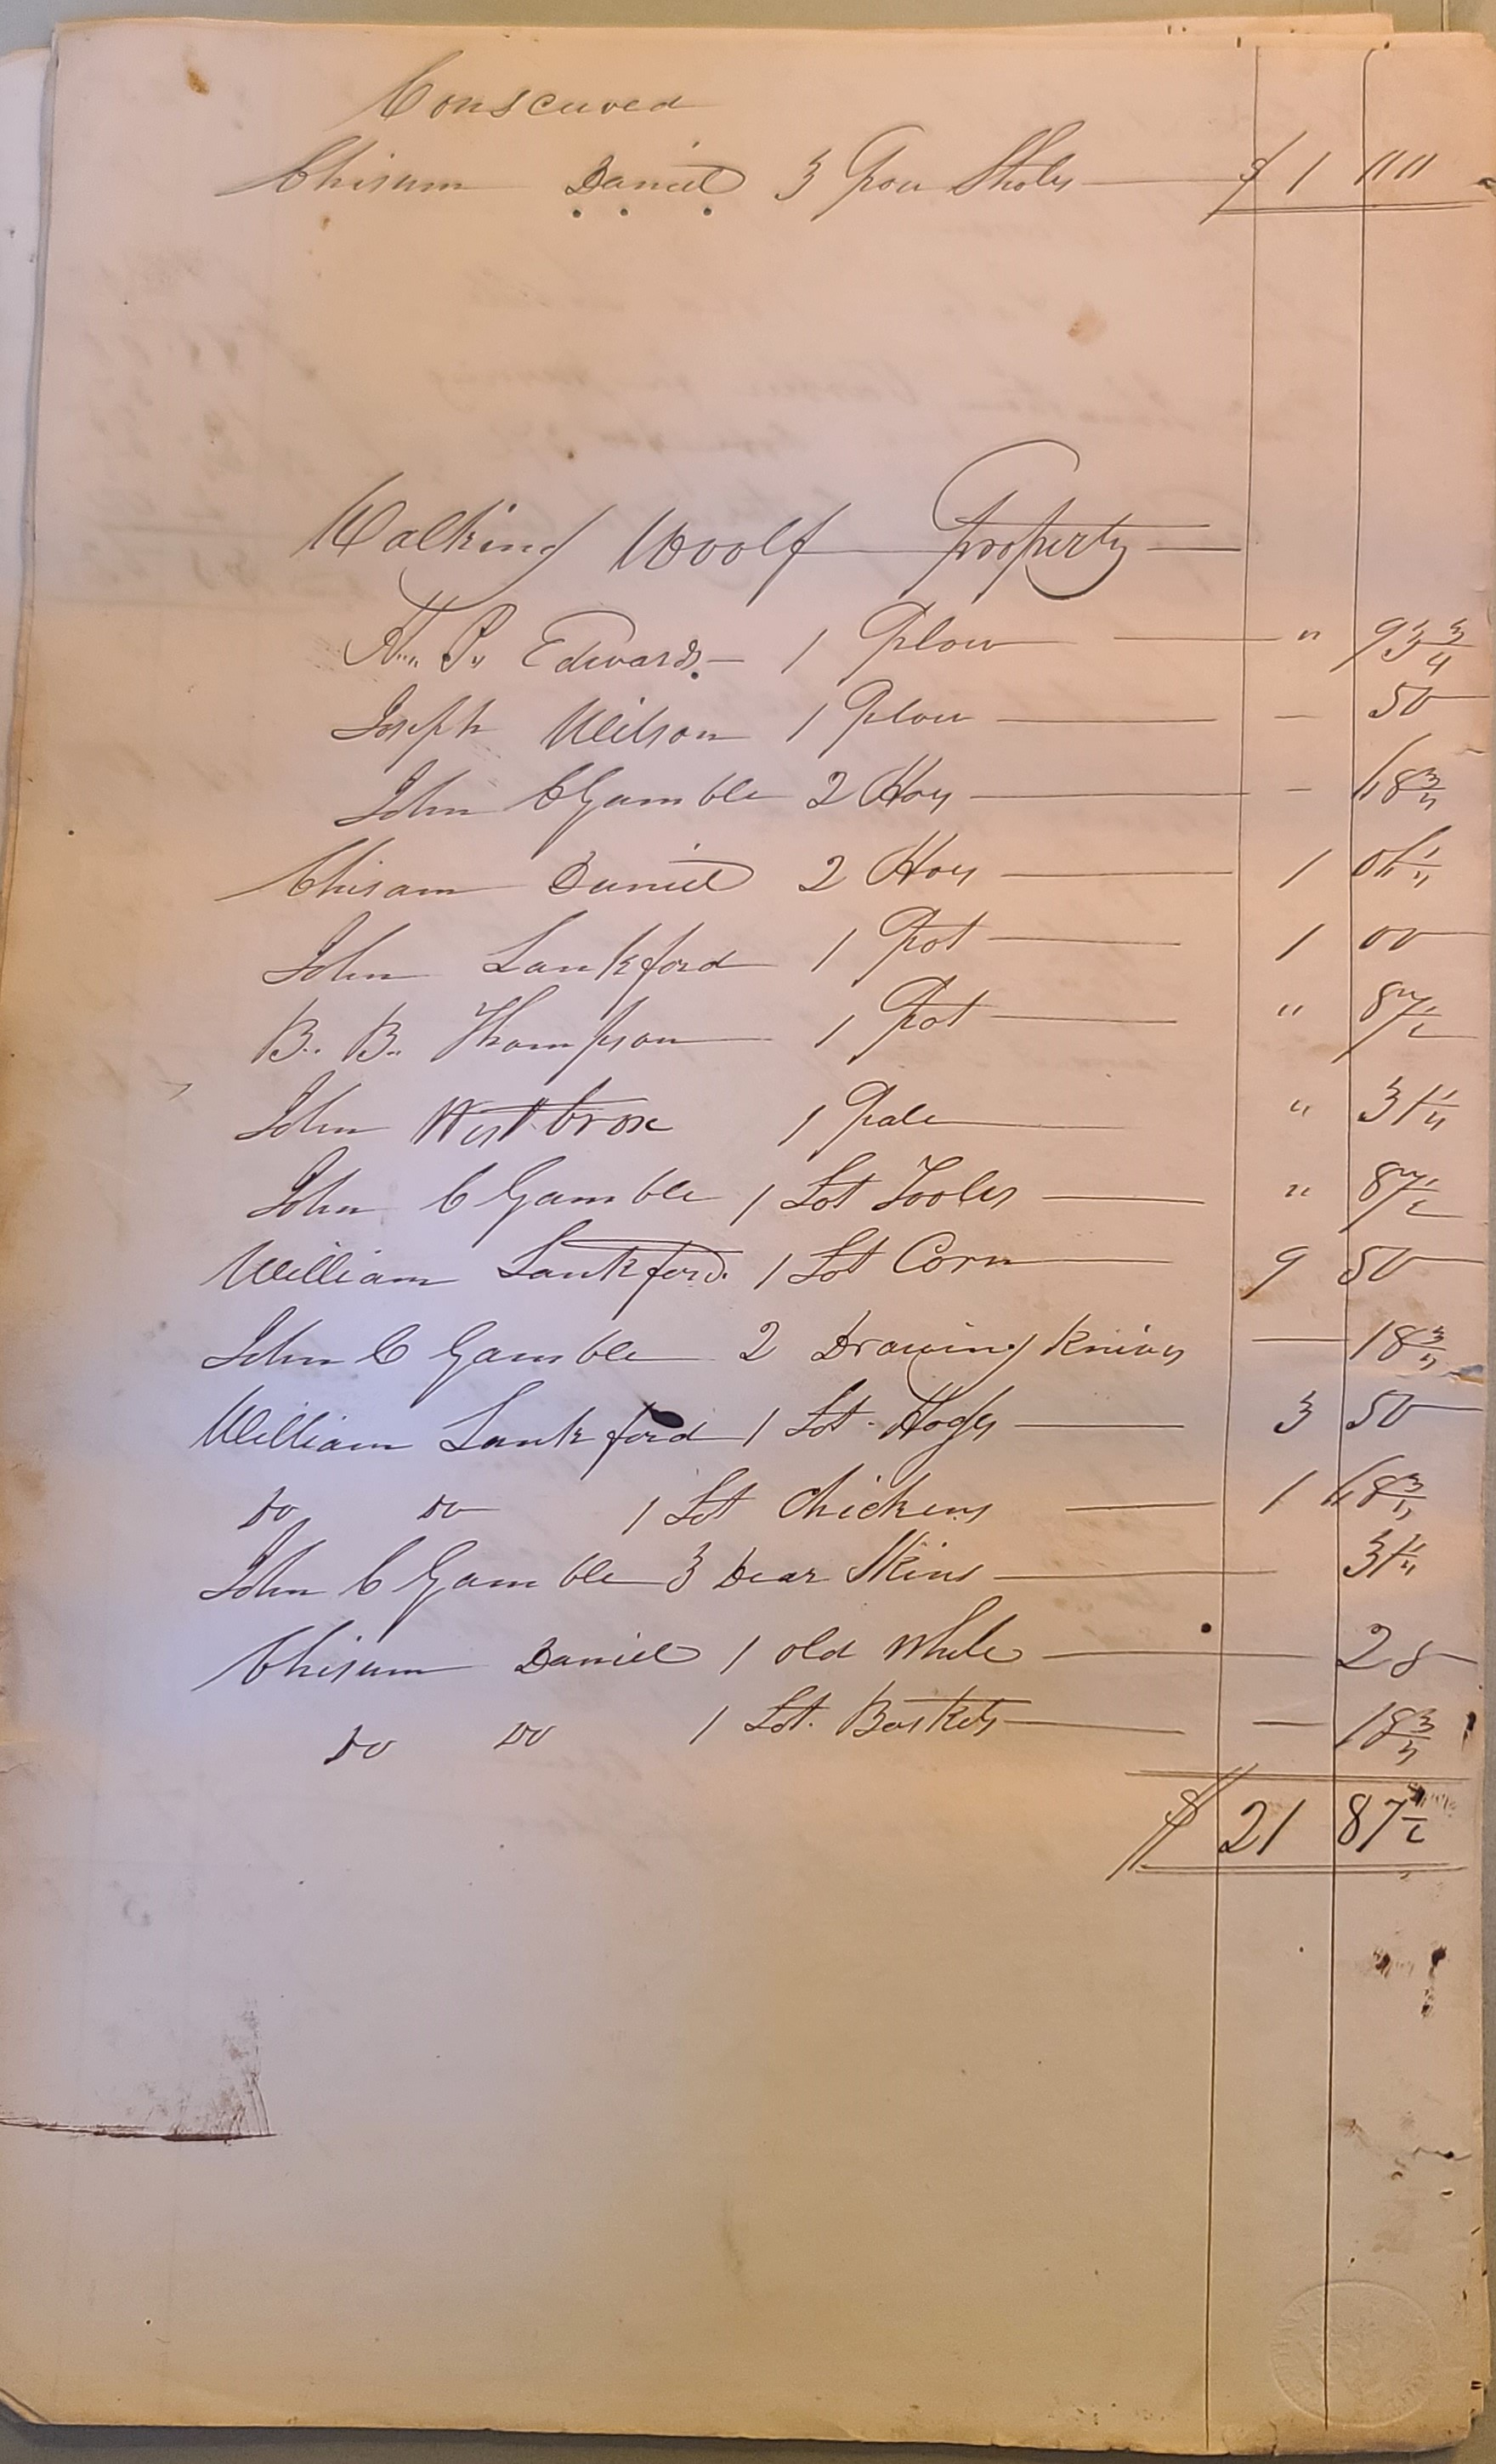 Chisum Daniel 3 Plow Sholes $ 1 """"
Walking Woolf Property
H. P. Edwards 1 Plow " 93 3/4
Joseph Wilson 1 Plow — 50
John C Gamble 2 Hoes — 68 3/4
Chisam Daniel 2 Hoes 1 06 1/4
John Lankford 1 Pot 1 00
B. B. Thompson 1 Pot " 87 1/2
John Westbrox 1 Pale " 31 1/4
John C Gamble 1 Lot Tooles " 87 1/2
William Lankford 1 Lot Corn 9 50
John C Gamble 2 Drawing Knives — 18 3/4
William Lankford 1 Lot Hogs 3 50
Do Do 1 Lot Chickens 1 68 3/4
John C Gamble 3 Dear Skins 31 1/4
Chisum Daniel 1 old While 25
Do Do 1 Lot. Baskets — 18 3/4
$ 21 87 1/2